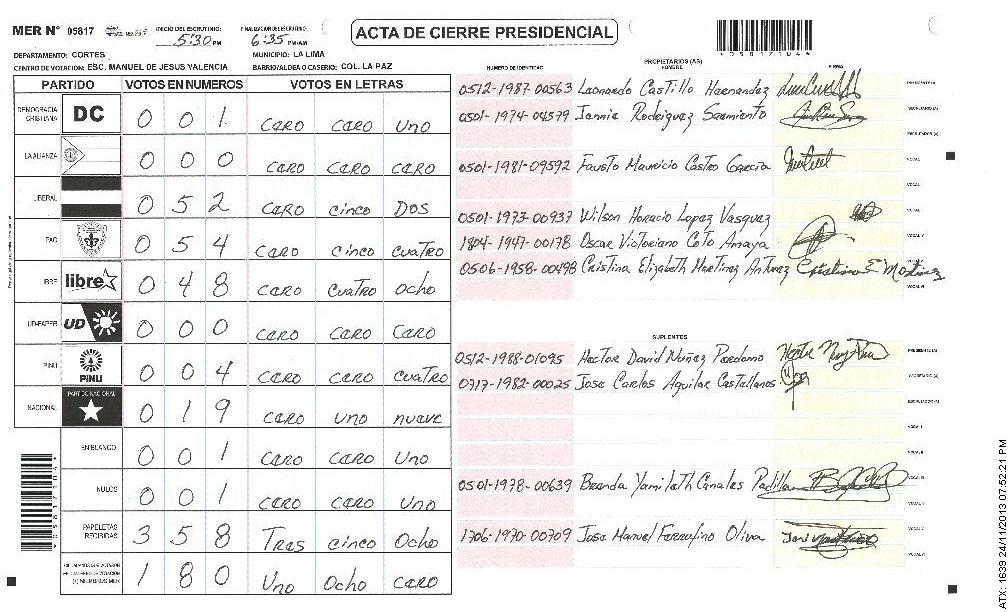 MER N° 05817 INICIO DEL ESCRUTINIO: 5:30 PM FINALIZACION DEL ESCRUTINIO: 6:35 PM/AM
ACTA DE CIERRE PRESIDENCIAL
*05817104*
DEPARTAMENTO: CORTES MUNICIPIO: LA LIMA
CENTRO DE VOTACIÓN: ESC. MANUEL DE JESUS VALENCIA BARRIO/ALDEA O CASERIO: COL. LA PAZ
PARTIDO VOTOS EN NUMEROS VOTOS EN LETRAS
DEMOCRACIA CRISTIANA DC 0 0 1 CERO CERO UNO
LA ALIANZA 0 0 0 CERO CERO CERO
LIBERAL 0 5 2 CERO CINCO DOS
PAC 0 5 4 CERO CINCO CUATRO
LIBRE libre 0 4 8 CERO CUATRO OCHO
UD-FAPER UD 0 0 0 CERO CERO CERO
PINU PINU 0 0 4 CERO CERO CUATRO
NACIONAL PARTIDO NACIONAL 0 1 9 CERO UNO NUEVE
EN BLANCO 0 0 1 CERO CERO UNO
NULOS 0 0 1 CERO CERO UNO
PAPELETAS RECIBIDAS 3 5 8 Tres CINCO OCHO
1 8 0 UNO OCHO CERO
NUMERO DE IDENTIDAD PROPIETARIOS (AS) NOMBRE FIRMA
0512-1987-00563 Leonardo Castillo Hernandez PRESIDENTE(A)
0501-1974-04579 Jannie Rodriguez Sarmiento SECRETARIO(A)
ESCRUTADOR (A)
0501-1981-09592 Fausto Mauricio Castro Garcia VOCAL I
0501-1973-00937 Wilson Horacio Lopez Vasquez
1804-1947-00178 Oscar Victoriano Coto Amaya
0506-1958-00498 Cristina Elizabeth Martinez Antunez Cristina E Martinez
SUPLENTES
0512-1988-01095 Hector David Nuñez Perdomo PRESIDENTE(A)
0717-1982-00025 Jose Carlos Aguilar Castellanos SECRETARIO (A)
ESCRUTADOR(A)
0501-1978-00639 Brenda Yamileth Canales Padilla
1706-1970-00709 Jose Manuel Ferrufino Oliva
ATX: 1639 24/11/2013 07:52:21 PM